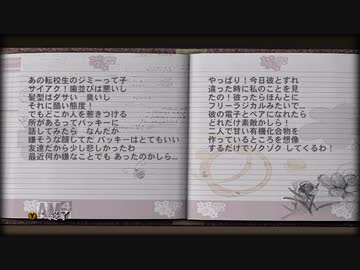 あの転校生のジミーって子
サイアク！歯並びは悪いし
髪型はダサい　臭いし
それに酷い態度！
でもどこか人を惹きつける
所があるってバッキーに
話してみたら　なんだか
嫌そうな顔してた バッキーはとてもいい
友達だから少し悲しかったわ
最近何か嫌なことでも あったのかしら…
やっぱり！今日彼とすれ
違った時に私のことを見
たの！彼ったらほんとに
フリーラジカルみたいで…
彼の電子とペアになれたら
どれだけ素敵かしら！
二人で甘い有機化合物を
作っているところを想像
するだけでゾクゾク してくるわ！
終了